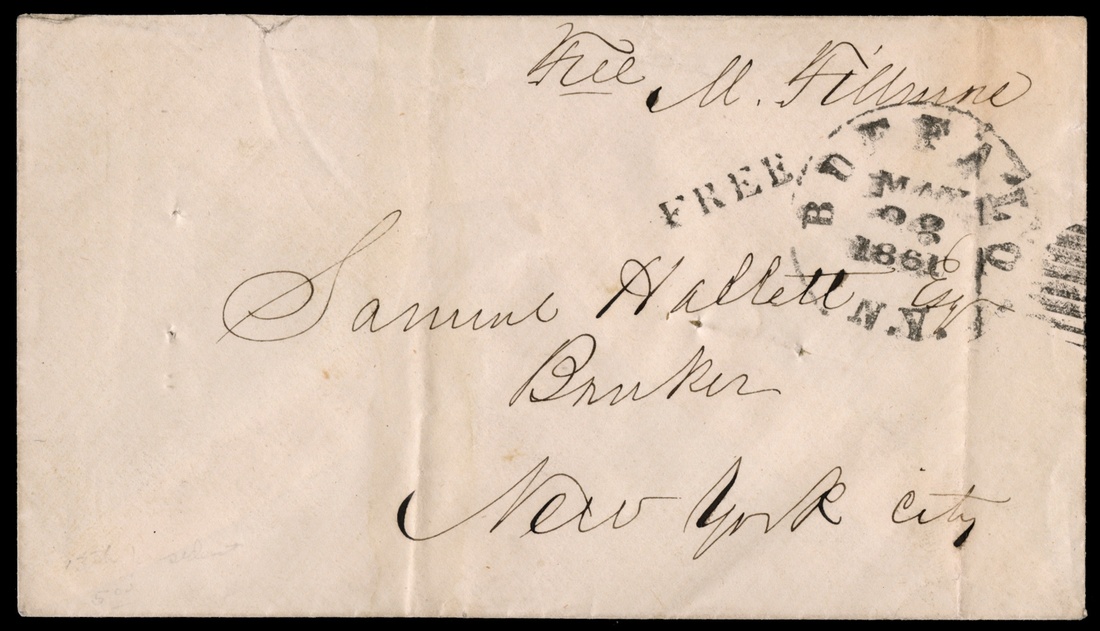 Free M. Fillmore
FREE
BUFFALO N.Y.
MAY
1861
Samuel Hallett Esq
Banker
New York City